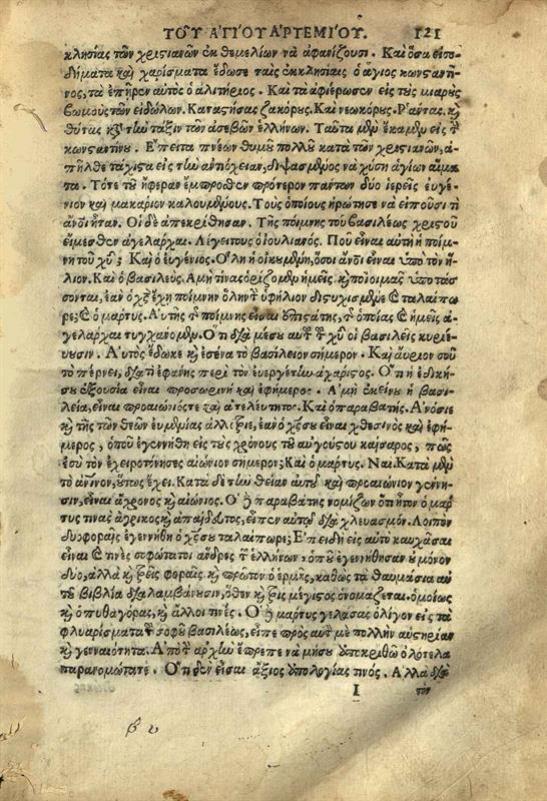 ΤΟΥ ΑΓΙΟΥ ΑΡΤΕΜΙΟΥ. 121
κλησίας τῶν χριστιανῶν ἐκ θεμελίων νὰ ἀφανίζουσι. Καὶ ὅσα
δήματα καὶ χαρίσματα ἔδωσε ταῖς ἐκκλησίαις ὁ ἅγιος κωνσταντῖ-
νος, τὰ ἐπῆρεν αὐτὸς ὁ ἀλιτήριος. Καὶ τὰ ἀφιέρωσεν εἰς τοὺς μιαροὺς
βωμοὺς τῶν εἰδώλων. Κατέστησας ζακόρους. Καὶ νεωκόρους. Ῥάντας. καὶ
θύτας καὶ τὴν τάξιν τῶν ἀσεβῶν ἑλλήνων. Ταῦτα μὲν ἔκαμεν εἰς τὴν
κωνσταντίνου. Ἔπειτα πνέων θυμοῦ πολλοῦ κατὰ τῶν χριστιανῶν, ἀ-
πῆλθε τάχιστα εἰς τὴν ἀντιόχειαν, διψασμένος νὰ χύσῃ ἁγίων αἵμα-
τα. Τότε τοῦ ἤφεραν ἔμπροσθεν πρότερον πάντων δύο ἱερεῖς εὐγέ-
νιον καὶ μακάριον καλουμένους. Τοὺς ὁποίους ἠρώτησε νὰ εἰποῦσι τί
ἄνδρες ἦταν. Οἱ δὲ ἀπεκρίθησαν. Τῆς ποίμνης τοῦ βασιλέως χριστοῦ
εἴμεσθεν ἀγελάρχαι. Λέγει τους ὁ ἰουλιανός. Ποῦ εἶναι αὐτὴ ἡ ποίμ-
νη τοῦ χῦ; Καὶ ὁ εὐγένιος. Ὅλη ἡ οἰκουμένη, ὅσοι ἄνδρες εἶναι ὑπὸ τὸν ἥ-
λιον. Καὶ ὁ βασιλεύς. Ἀμὴ τίνας ὁρίζομεν ἡμεῖς καὶ ποῖοι μας ὑποτάσ
σονται, ἐὰν ὁ χς ἔχῃ ποίμνην ὅλην τὴν ὑφήλιον δυστυχισμένε καὶ ταλαίπω
ρε; ὁ μάρτυς. Αὐτῆς τῆς ποίμνης εἶναι ποιστάτης, τῆς ὁποίας καὶ ἡμεῖς ἀ-
γελάρχαι τυγχάνομεν. Ὅτι διὰ μέσου αὐτοῦ τοῦ χῦ οἱ βασιλεῖς κυριεύ-
ουσιν. Αὐτὸς ἔδωκε καὶ ἐσένα τὸ βασίλειον σήμερον. Καὶ αὔριον σοῦ
τὸ πέρνει, διατὶ ἐφάνης περὶ τὸν εὐεργέτην ἀχάριστος. Ὅτι ἡ ἐδική-
σου ἐξουσία εἶναι προσωρινὴ καὶ ἐφήμερος. Ἀμὴ ἐκείνου ἡ βασι-
λεία, εἶναι προαιώνιός τε καὶ ἀτελεύτητος. Καὶ ὁ παραβάτης. Ἀνόσιε
καὶ τῆς τῶν θεῶν εὐμενίας ἀλλότριε, ἐὰν ὁ χς σου εἶναι χθεσινὸς καὶ ἐφή-
μερος, ὁποῦ ἐγεννήθη εἰς τοὺς χρόνους τοῦ αὐγούστου καίσαρος, πῶς
ἐσὺ τὸν ἐχειροτόνησες αἰώνιον σήμερον; Καὶ ὁ μάρτυς. Ναί. Κατὰ μὲν
τὸ ἀνθρώπινον, οὕτως ἔχει. Κατὰ δὲ τὴν θείαν αὐτοῦ καὶ προαιώνιον γέννη-
σιν, εἶναι ἄχρονος καὶ αἰώνιος. Ὁ δὲ παραβάτης νομίζων ὅτι ἦτον ὁ μάρ
τυς τινὰς ἄγροικος, καὶ ἀπαίδευτος, εἶπεν αὐτῷ διὰ χλευασμόν. Λοιπὸν
δυο φοραῖς ἐγεννήθη ὁ χς σου ταλαίπωρε; Ἐπειδὴ εἰς αὐτὸ καυχᾶσαι
εἶναι καὶ τινὲς σοφώτατοι ἄνδρες τῶν ἑλλήνων, ὁποῦ ἐγεννήθησαν οὐ μόνον
δυο, ἀλλὰ καὶ τρεῖς φοραῖς. καὶ πρῶτον ὁ ἑρμῆς, καθὼς τὰ θαυμάσια αὐ
τοῦ βιβλία διαλαμβάνουσιν, ὅθεν καὶ τρὶς μέγιστος ὀνομάζεται. ὁμοίως
καὶ ὁ πυθαγόρας, καὶ ἄλλοι τινές. Ὁ δὲ μάρτυς γελάσας ὀλίγον εἰς τὰ
φλυαρίσματα τοῦ σοφοῦ βασιλέως, εἶπε πρὸς αὐτὸν μὲ πολλὴν αὐστηρίαν
καὶ γενναιότητα. Ἀπὸ τὴν ἀρχὴν ἔπρεπε νὰ μήσου ἀποκριθῶ ὁλότελα
παρανομώτατε. Ὅτι δὲν εἶσαι ἄξιος ἀπολογίας τινός. Ἀλλὰ διὰ
I τὸν